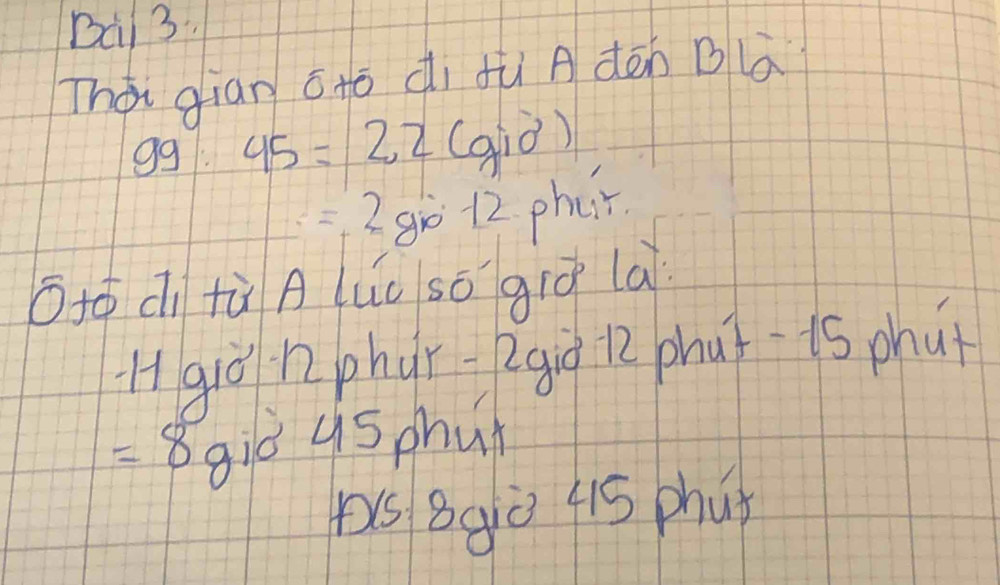 Bài 3.
Thời gian ô tô đi từ A đến B là:
99 : 45 = 2,2 (giờ)
= 2 giờ 12 phút.
Ô tô đi từ A lúc số giờ là:
11 giờ 12 phút - 2 giờ 12 phút - 15 phút
= 8 giờ 45 phút
Đ/S: 8 giờ 45 phút